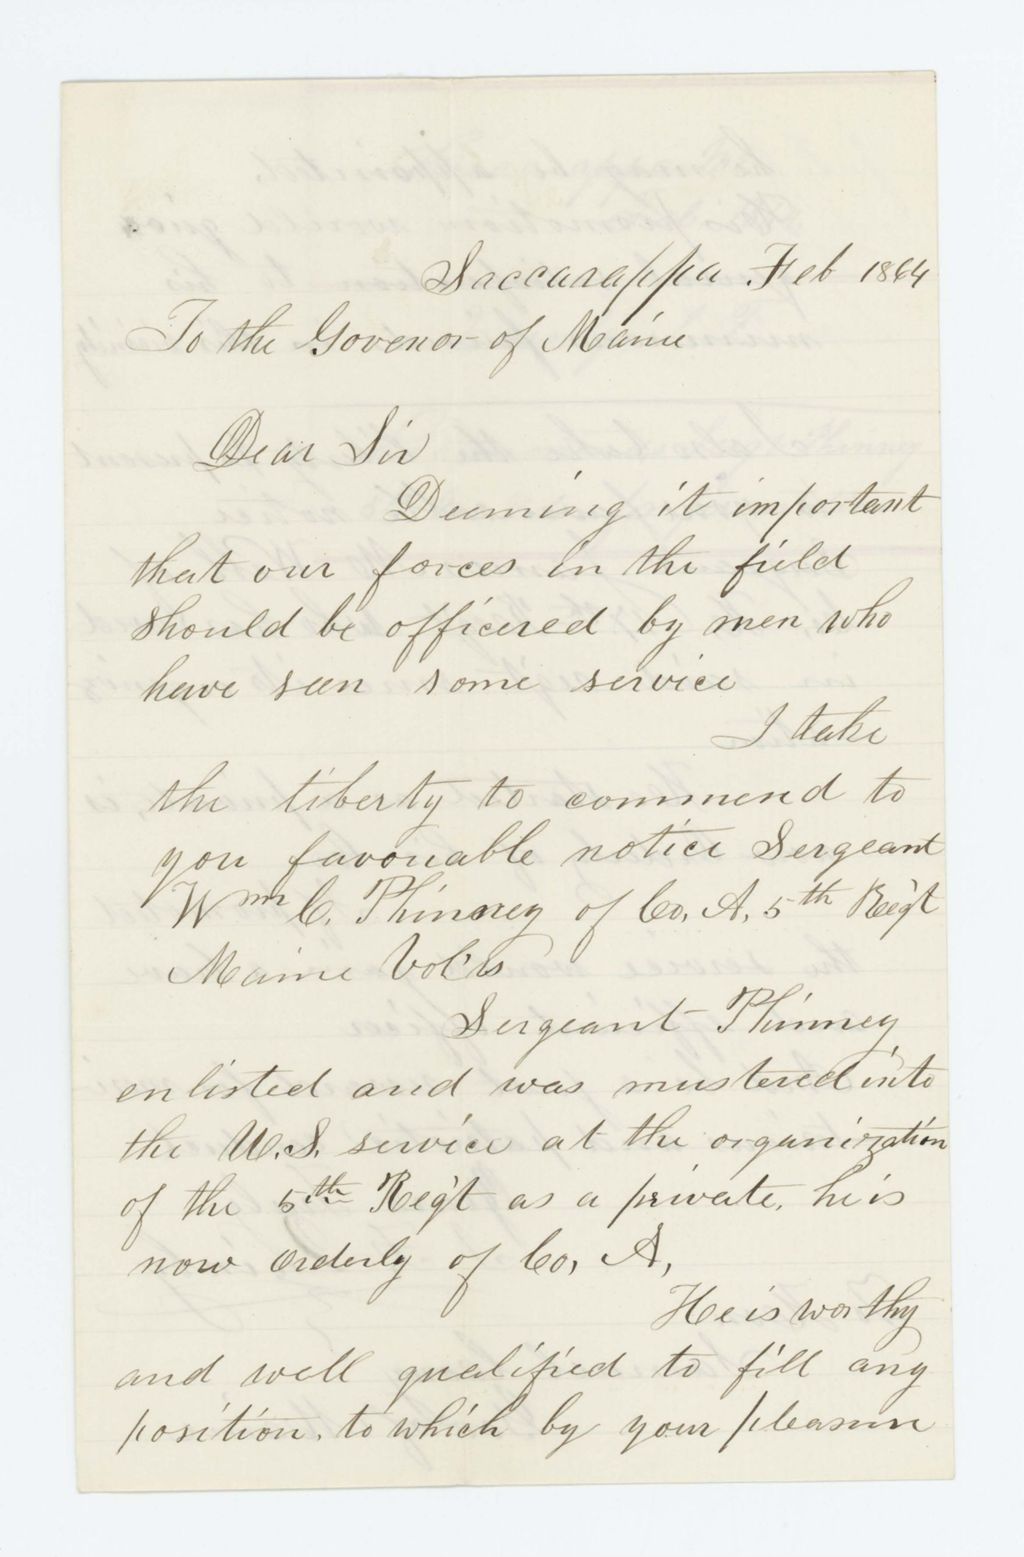 Saccarappa Feb 1864
To the Govenor of Maine
Dear Sir
Deeming it important
that our forces in the field
should be officered by men who
have seen some service
I take
the liberty to commend to
you favouable notice Sergeant
Wm C. Phinney of Co, A, 5th Reg't
Maine Vol's
Sergeant Phinney
enlisted and was mustered into
the U.S. service at the organization
of the 5th Reg't as a private, he is
now Orderly of Co, A,
He is worthy
and well qualified to fill any
position, to which by your pleasure